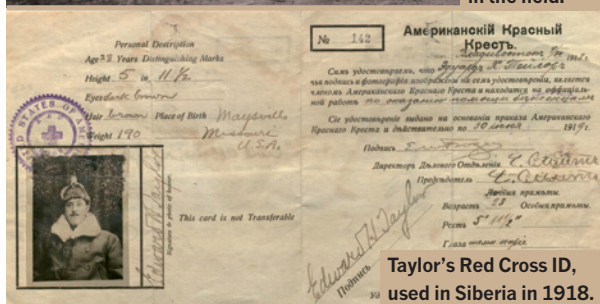 in the field.
Personal Description
Age 28 Years Distinguishing Marks
Height 5 in, 11 1/2
Eyes dark brown
Hair brown Place of Birth Maysville
Weight 190 Missouri
U.S.A.
UNITED STATES OF AMERICA
Edward H Taylor
Signature & photo of bearer.
This card is not Transferable
№ 142
Американскій Красный
Крестъ.
Владивостокъ
Симъ удостовѣряю, что Эдуардъ Х. Тейлоръ
чья подпись и фотографія изображены на семъ удостовѣреніи, является
членомъ Американскаго Краснаго Креста и находится на оффиціаль-
ной работѣ по оказанію помощи
Сіе удостовѣреніе выдано на основаніи приказа Американскаго
Краснаго Креста и дѣйствительно до 30 1919г.
Подпись
Директоръ Дѣлового Отдѣленія
Предсѣдатель
Личныя примѣты.
Возрастъ 28 Особыя примѣты.
Ростъ 5" 11½"
Глаза темно каріе
Edward H Taylor
Подпись
Taylor's Red Cross ID,
used in Siberia in 1918.